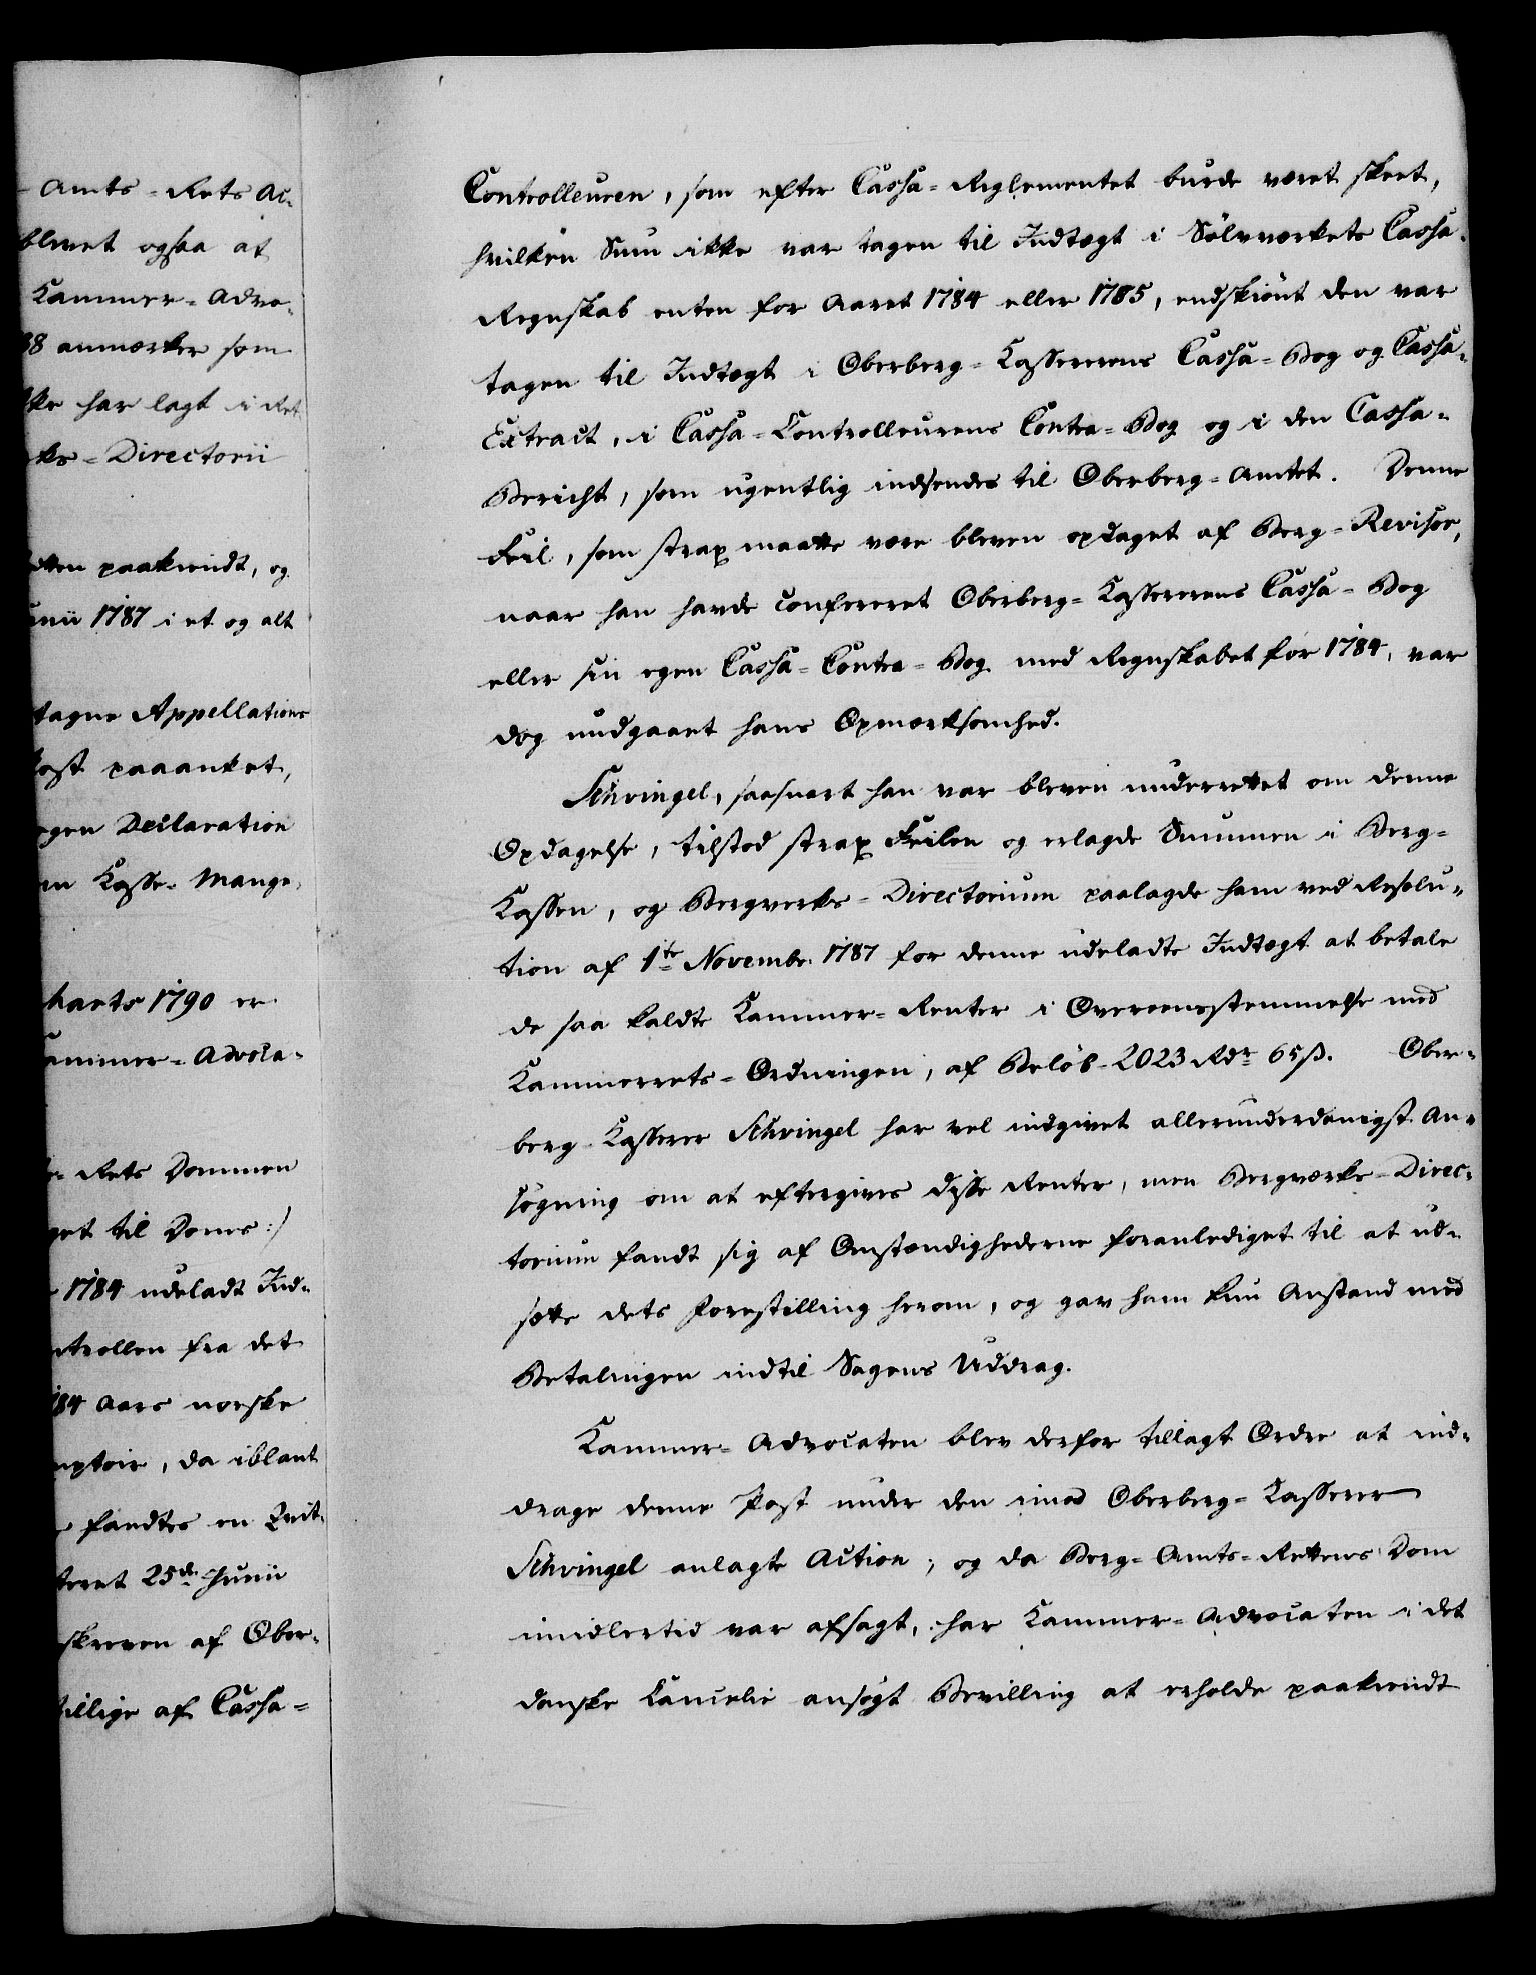 - Amts-Rets Ac-
blevet ogsaa at
Kammer-Advo-
88 anmærker som
ke har lagt i Ret
ks-Directorii
tten paakiendt, og
unii 1787 i et og alt
tagne Appellations
ost paaanket,
egen Declaration
en Kasse-Mange,
harts 1790 er
ammer-Advoca-
e-Rets Dommen
get til Doms:/
1784 udeladt Ind-
ntrollen fra det
184 Aars norske
mptoir, da iblant
fandtes en Qvit-
teret 25de Junii
skreven af Ober-
tillige af Cassa-
Controlleuren, som efter Cassa-Reglementet burde været skeet,
hvilken Sum ikke var tagen til Indtægt i Sølvværkets Cassa-
Regnskab enten for Aaret 1784 eller 1785, endskiönt den var
tagen til Indtægt i Oberberg-Kassererens Cassa-Bog og Cassa-
Extract, i Cassa-Controlleurens Contra-Bog og i den Cassa-
Bericht, som ugentlig indsendes til Oberberg-Amtet. Denne
Feil, som strax maatte være bleven opdaget af Berg-Revisor,
naar han havde confereret Oberberg-Kassererens Cassa-Bog
eller sin egen Cassa-Contra-Bog med Regnskabet for 1784, var
dog undgaaet hans Opmærksomhed.
Schvingel, saasnart han var bleven underrettet om denne
Opdagelse, tilstod strax Feilen og erlagde Summen i Berg-
Kassen, og Bergverks-Directorium paalagde ham ved Resolu-
tion af 1te Novembr. 1787 for denne udeladte Indtægt at betale
de saa kaldte Kammer-Renter i Overeensstemmelse med
Kammerrets-Ordningen, af Beløb 2023 Rdr 65 ß. Ober-
berg-Kasserer Schvingel har vel indgivet allerunderdanigst An-
søgning om at eftergives disse Renter, men Bergværks-Direc-
torium fandt sig af Omstændighederne foranlediget til at ud-
sætte dets Forestilling herom, og gav ham kun Anstand med
Betalingen indtil Sagens Uddrag.
Kammer-Advocaten blev derfor tillagt Ordre at ind-
drage denne Post under den imod Oberberg-Kasserer
Schvingel anlagte Action; og da Berg-Amts-Rettens Dom
imidlertid var afsagt, har Kammer-Advocaten i det
danske Cancelie ansøgt Bevilling at erholde paakiendt